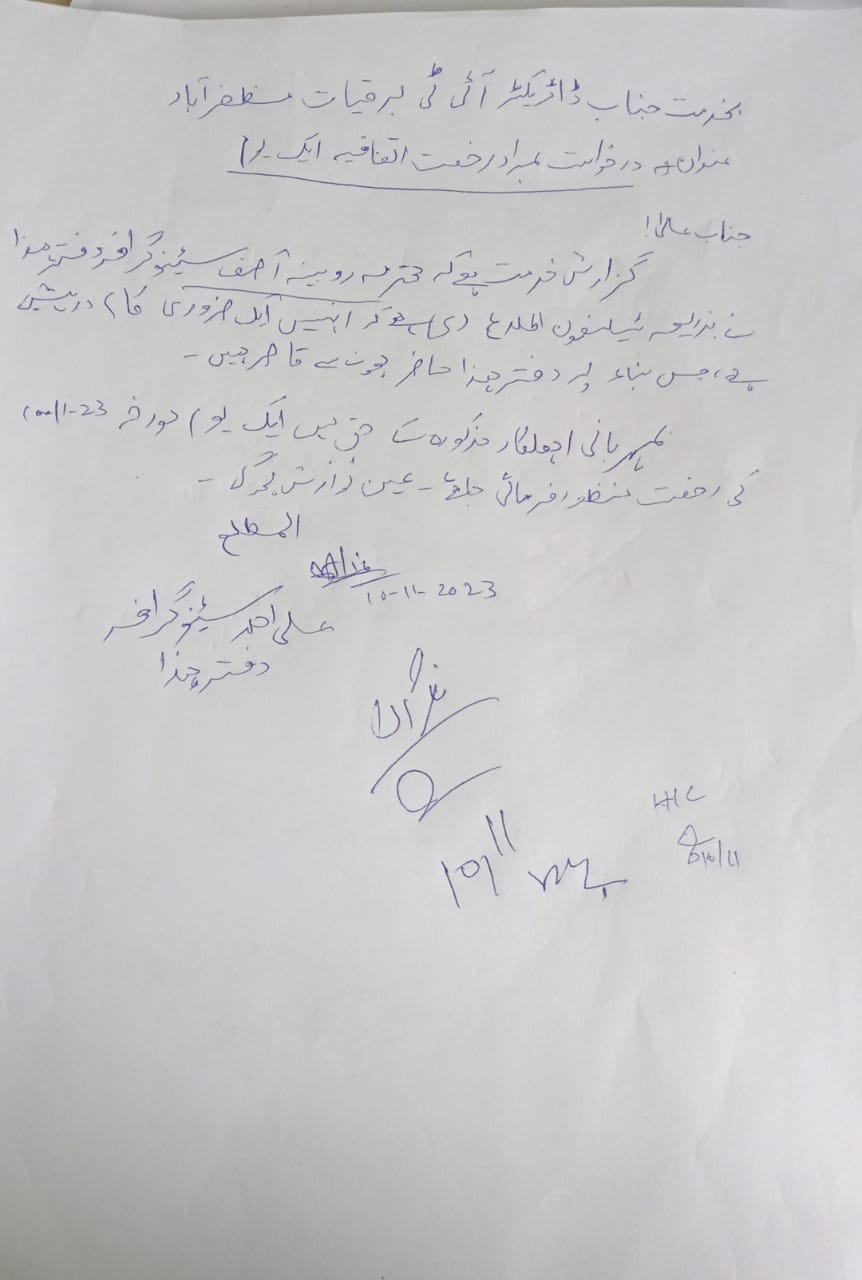 بخدمت جناب ڈائریکٹر آئی ٹی برقیات مظفرآباد
عنوان:- درخواست بمراد رخصت اتفاقیہ ایک یوم
جناب عالی!
گزارش خدمت ہے کہ محترمہ روبینہ آصف سٹینوگرافر دفتر ہذا
نے بذریعہ ٹیلیفون اطلاع دی ہے کہ انہیں ایک ضروری کام درپیش
ہے، جس بناء پر دفتر ہذا حاضر ہونے سے قاصر ہیں۔
بمہربانی اہلکار مذکورہ کے حق میں ایک یوم مورخہ 10-11-23
کی رخصت منظور فرمائی جائے۔ عین نوازش ہوگی۔
المطلع
10-11-2023
علی احمد سٹینوگرافر
دفتر ہذا
10/11
10/11